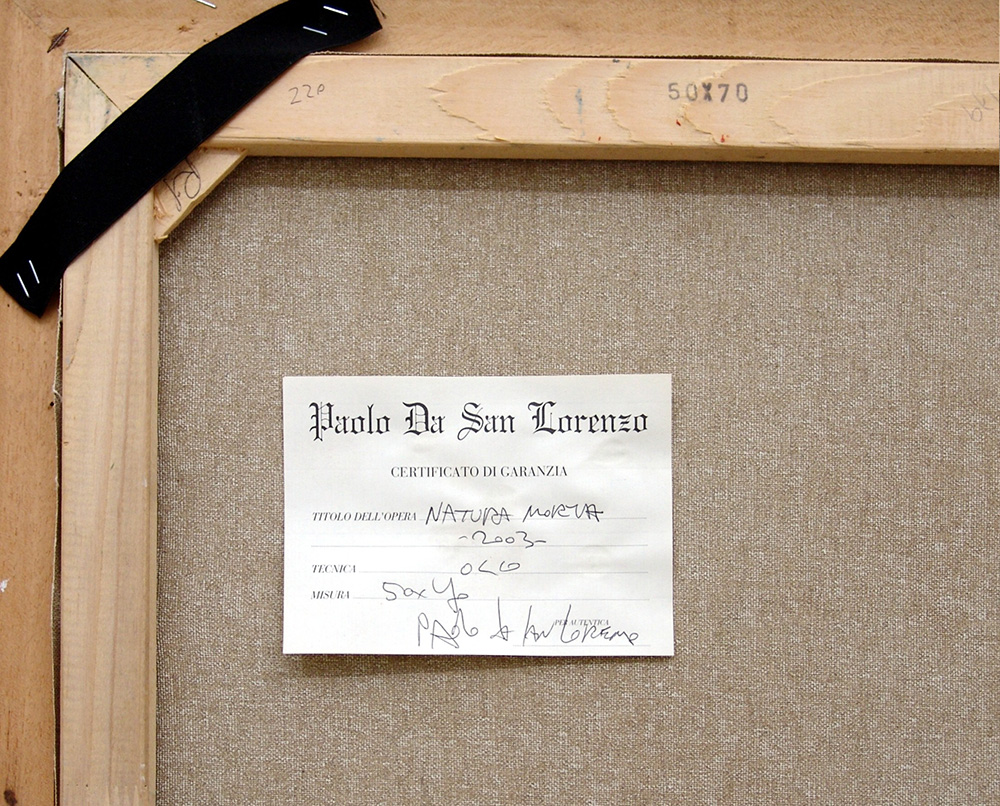 220
50X70
Paolo Da San Lorenzo
CERTIFICATO DI GARANZIA
TITOLO DELL'OPERA NATURA MORTA
-2003-
TECNICA OLIO
MISURA 50x70
PER AUTENTICA
PAOLO DA SAN LORENZO